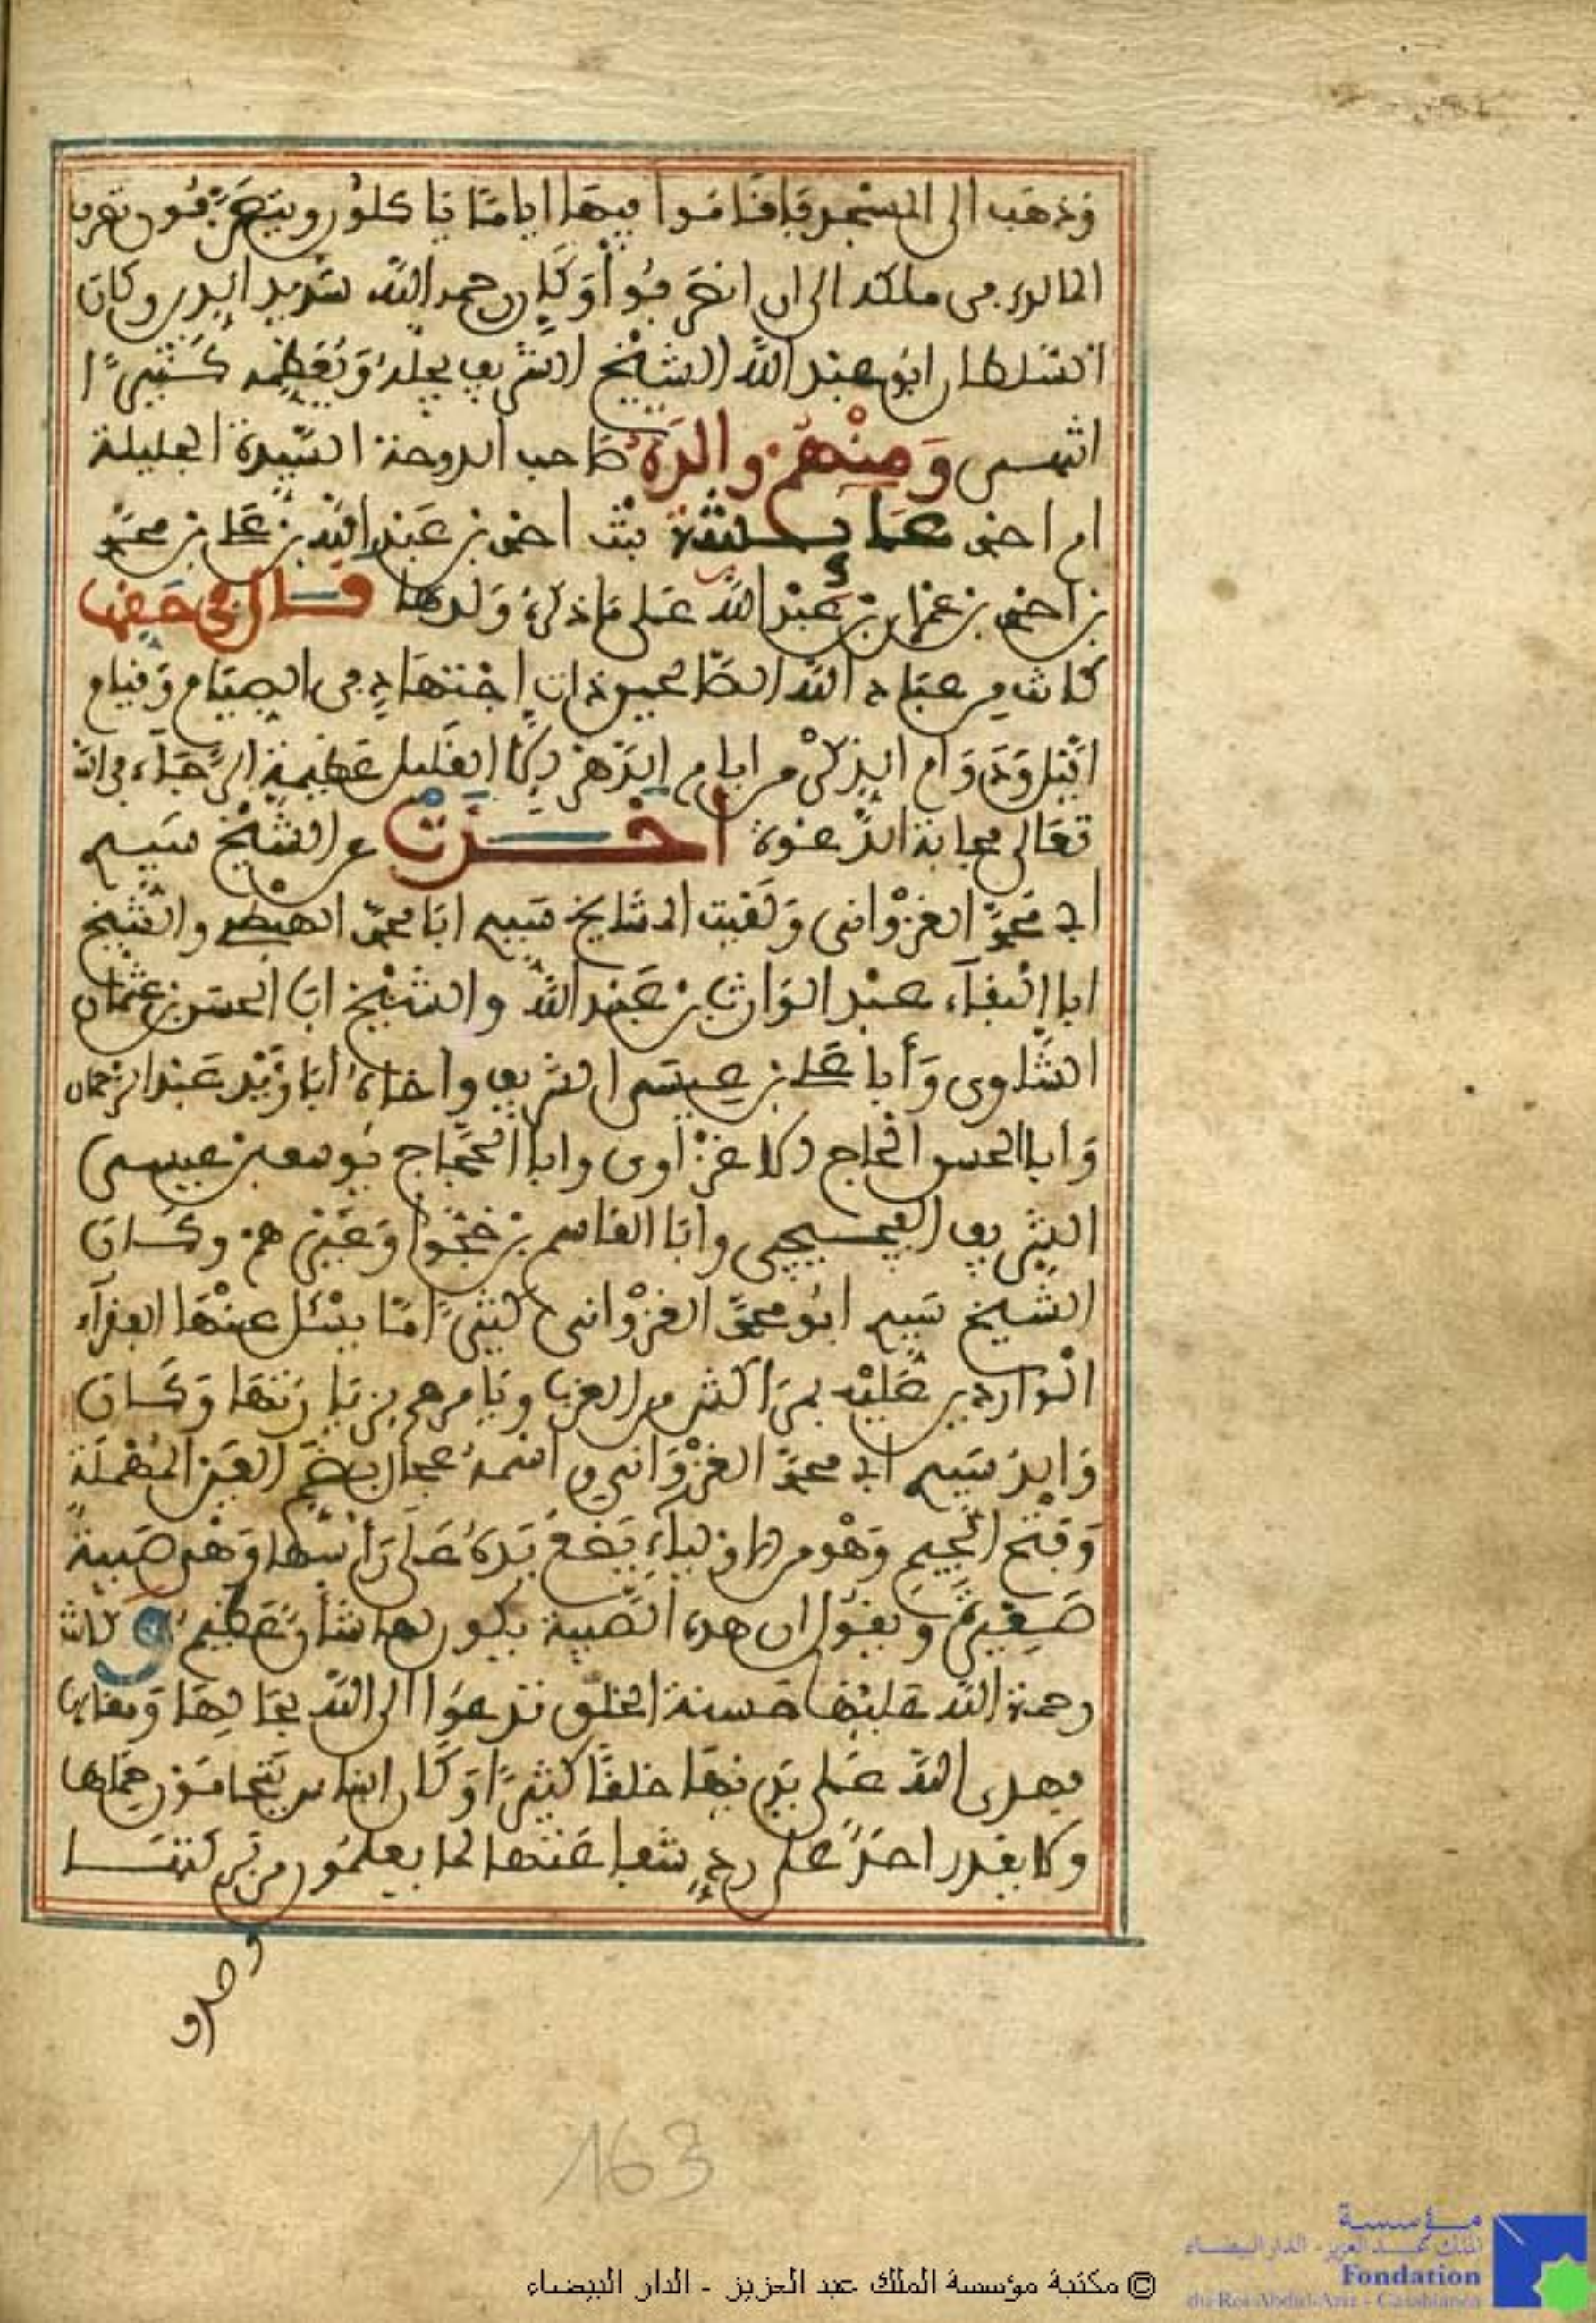 وذهب الى المسجد فاقاموا فيها اياما ياكلون ويتصرفون تصرف
المالك في ملكه الى ان انصرفوا وكان رحمه الله شديد الدين وكان
السلطان ابو عبد الله الشيخ الشريف يجله ويعظمه كثيرا
انتهى ومنهم والدة صاحب الدوحة السيدة الجليلة
ام احمد عايشة بنت احمد بن عبد الله بن علي بن محمد
بن احمد بن عمران بن عبد الله على ما ذكره ولدها قال في حقها
كانت من عباد الله الصالحين ذات اجتهاد في الصيام وقيام
الليل ودوام الذكر من ايام الدهر الا القليل عظيمة الرجاء في الله
تعالى مجابة الدعوة اخذت عن الشيخ سيدي
ابي محمد الغزواني ولقيت المشايخ سيدي ابا محمد الهبطي والشيخ
ابا البقاء عبد الوارث بن عبد الله والشيخ ابا الحسن بن عثمان
الشاوي وأبا علي بن عيسى الشريف واخاه ابا زيد عبد الرحمان
وأبا الحسن الحاج الاغزاوي وابا الحجاج يوسف بن عيسى
الشريف الفجيجي وأبا القاسم بن خجوا وغيرهم وكان
الشيخ سيدي ابو محمد الغزواني كثيرا ما يسئل عنها الفقراء
الواردين عليه بمراكش من الغرب ويامرهم بزيارتها وكان
والد سيدي ابي محمد الغزواني واسمه عجال بضم العين المهملة
وفتح الجيم وهو من الاولياء يضع يده على رأسها وهي صبية
صغيرة ويقول ان هذه الصبية يكون لها شأن عظيم وكانت
رحمة الله عليها حسنة الخلق تدعوا الى الله بحالها ومقالها
فهدى الله على يديها خلقا كثيرا وكان الناس يتحامون حماها
ولا يقدر احد على رد شفاعتها لما يعلمون من بركتها
وصدق
163
© مكتبة مؤسسة الملك عبد العزيز - الدار البيضاء
مؤسسة
الملك عبد العزيز - الدار البيضاء
Fondation
du Roi Abdul-Aziz - Casablanca